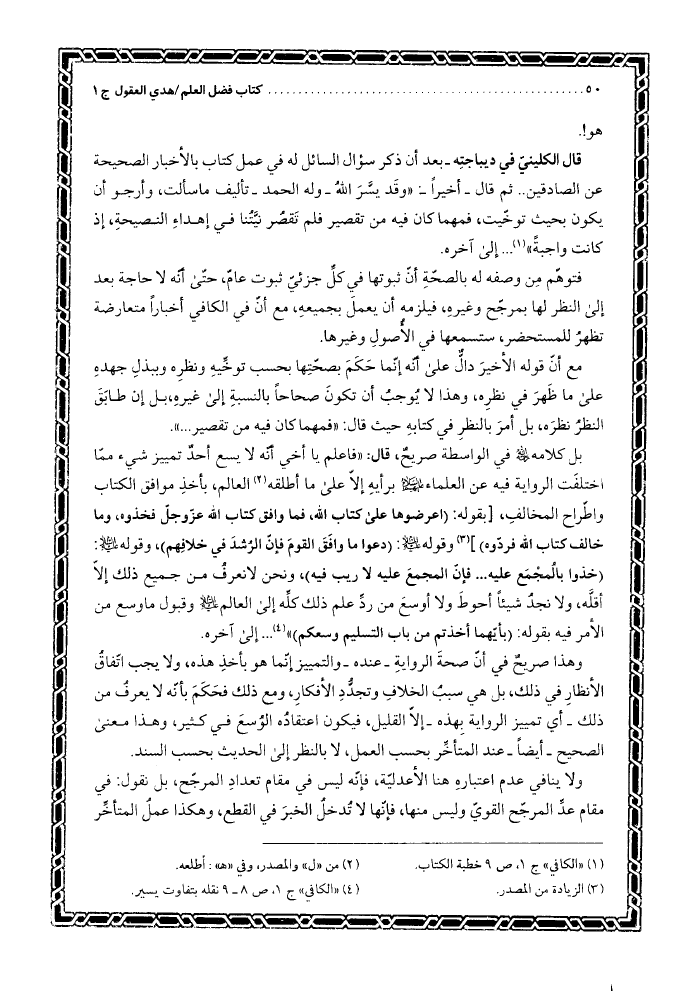 ٥٠ ................................................ كتاب فضل العلم/هدي العقول ج١
هو!.
قال الكلينيّ في ديباجتِه ـ بعد أن ذكر سؤال السائل له في عمل كتاب بالأخبار الصحيحة
عن الصادقين.. ثم قال ـ أخيراً ـ: «وقَد يسَّرَ اللهُ ـ وله الحمد ـ تأليف ماسألت، وأرجـو أن
يكون بحيث توخّيت، فمهما كان فيه من تقصير فلم تَقصُر نيَّتُنا فـي إهـداءِ النـصيحةِ، إذ
كانت واجبةً»(١)... إلىٰ آخره.
فتوهّم مِن وصفه له بالصحّةِ أنّ ثبوتها في كلِّ جزئيّ ثبوت عامّ، حتّىٰ أنّه لا حاجة بعد
إلىٰ النظر لها بمرجّح وغيرهِ، فيلزمه أن يعملَ بجميعهِ، مع أنّ في الكافي أخباراً متعارضة
تظهرُ للمستحضر، ستسمعها في الأُصولِ وغيرها.
مع أنّ قوله الأخيرَ دالٌّ علىٰ أنّه إنّما حَكَمَ بصحّتِها بحسب توخِّيهِ ونظرِه وببذلِ جهدهِ
علىٰ ما ظَهرَ في نظرِه، وهذا لا يُوجبُ أن تكونَ صحاحاً بالنسبةِ إلىٰ غيرِه،بـل إن طـابَقَ
النظرُ نظرَه، بل أمرَ بالنظرِ في كتابهِ حيث قال: «فمهما كان فيه من تقصير...».
بل كلامه ﵀ في الواسطة صريحٌ، قال: «فاعلم يا أخي أنّه لا يسع أحدٌ تمييز شيء ممّا
اختلفَت الرواية فيه عن العلماء ﵈ برأيهِ إلاّ علىٰ ما أطلقه(٢) العالم، بأخذِ موافق الكتاب
واطّراح المخالفِ، [بقوله: (اعرضوها علىٰ كتاب الله، فما وافق كتاب الله عزّوجلّ فخذوه، وما
خالف كتاب الله فردّوه)](٣) وقوله ﵇: (دعوا ما وافَقَ القومَ فإنّ الرُشدَ في خلافِهم)، وقوله ﵇:
(خذوا بالُمجْمَع عليه... فإنّ المجمعَ عليه لا ريب فيه)، ونحن لانعرفُ مـن جـميع ذلك إلاّ
أقلَّه، ولا نجدُ شيئاً أحوطَ ولا أوسعَ من ردِّ علم ذلك كلِّه إلىٰ العالم ﵇ وقبول ماوسع من
الأمر فيه بقوله: (بأيّهما أخذتم من باب التسليم وسعكم)»(٤)... إلىٰ آخره.
وهذا صريحٌ في أنّ صحةَ الروايةِ ـ عنده ـ والتمييز إنّما هو بأخذِ هذه، ولا يجب اتّفاقُ
الأنظار في ذلك، بل هي سببُ الخلافِ وتجدُّدِ الأفكارِ، ومع ذلك فحَكَمَ بأنّه لا يعرفُ من
ذلك ـ أي تمييز الرواية بِهذه ـ إلاّ القليل، فيكون اعتقادُه الوُسعَ فـي كـثير، وهـذا مـعنىٰ
الصحيح ـ أيضاً ـ عند المتأخِّر بحسب العمل، لا بالنظر إلىٰ الحديث بحسب السند.
ولا ينافي عدم اعتبارِهِ هنا الأعدليّة، فإنّه ليس في مقام تعدادِ المرجّح، بل نقول: في
مقام عدِّ المرجّح القويّ وليس منها، فإنّها لا تُدخلُ الخبرَ في القطع، وهكذا عملُ المتأخِّر
(١) «الكافي» ج ١، ص ٩ خطبة الكتاب. (٢) من «ل» والمصدر، وفي «هـ» : أطلعه.
(٣) الزيادة من المصدر. (٤) «الكافي» ج ١، ص ٨ ـ ٩ نقله بتفاوت يسير.